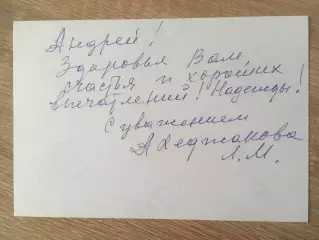 Андрей!
Здоровья Вам
счастья и хороших
впечатлений! Надежды!
с уважением
Ахеджакова
Л.М.